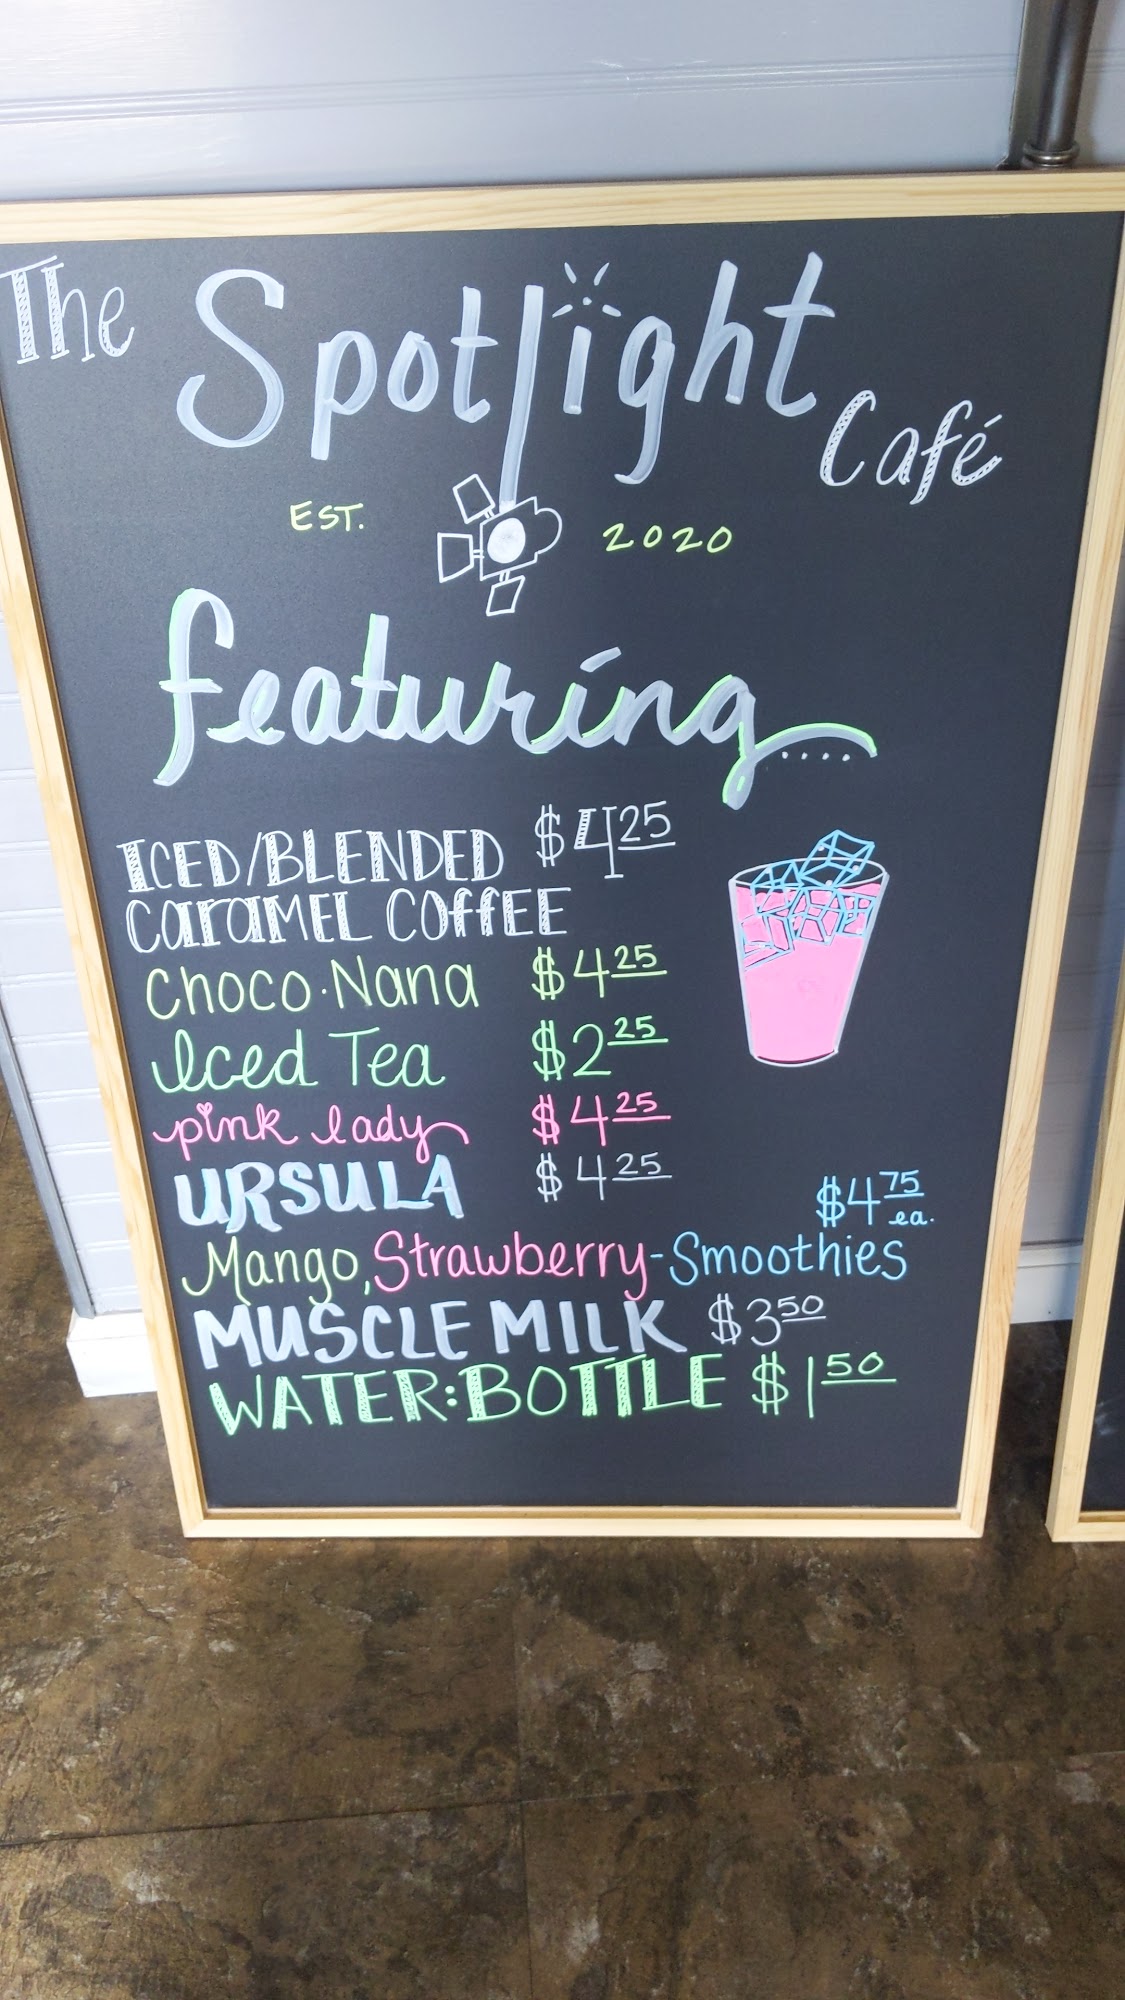 The Spotlight Café
EST. 2020
featuring....
ICED/BLENDED $4.25
CARAMEL COFFEE
Choco·Nana $4.25
Iced Tea $2.25
pink lady $4.25
URSULA $4.25
$4.75 ea.
Mango, Strawberry-Smoothies
MUSCLE MILK $3.50
WATER:BOTTLE $1.50